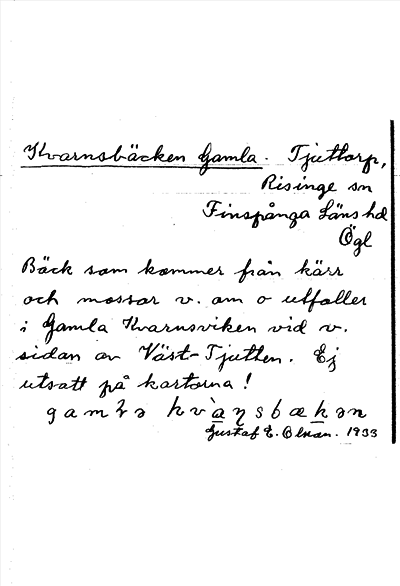 Kvarnsbäcken Gamla. Tjuttorp,
Risinge sn
Finspånga Läns hd
Ögl
Bäck som kommer från kärr
och mossar v. om o utfaller
i Gamla Kvarnsviken vid v.
sidan av Väst-Tjutten. Ej
utsatt på kartorna!
Gustaf E. Olsson. 1933